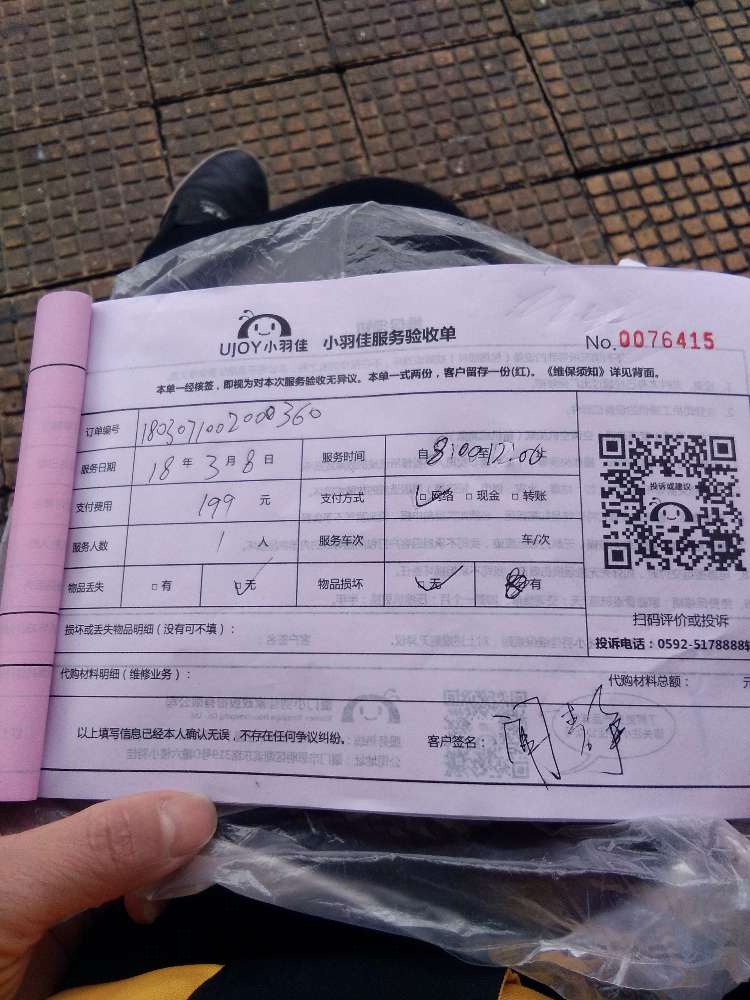 UJOY小羽佳 小羽佳服务验收单
No.0076415
本单一经核签，即视为对本次服务验收无异议。本单一式两份，客户留存一份(红)。《维保须知》详见背面。
订单编号 1803071002000360
服务日期 18 年 3 月 8 日 服务时间 自 8:00 至 12:00 止
支付费用 199 元 支付方式 □网络 □现金 □转账
服务人数 1 人 服务车次 车/次
物品丢失 □有 □无 物品损坏 □无 □有
投诉或建议
扫码评价或投诉
投诉电话：0592-5178888转
损坏或丢失物品明细（没有可不填）：
代购材料明细（维修业务）：
代购材料总额： 元
以上填写信息已经本人确认无误，不存在任何争议纠纷。
客户签名：